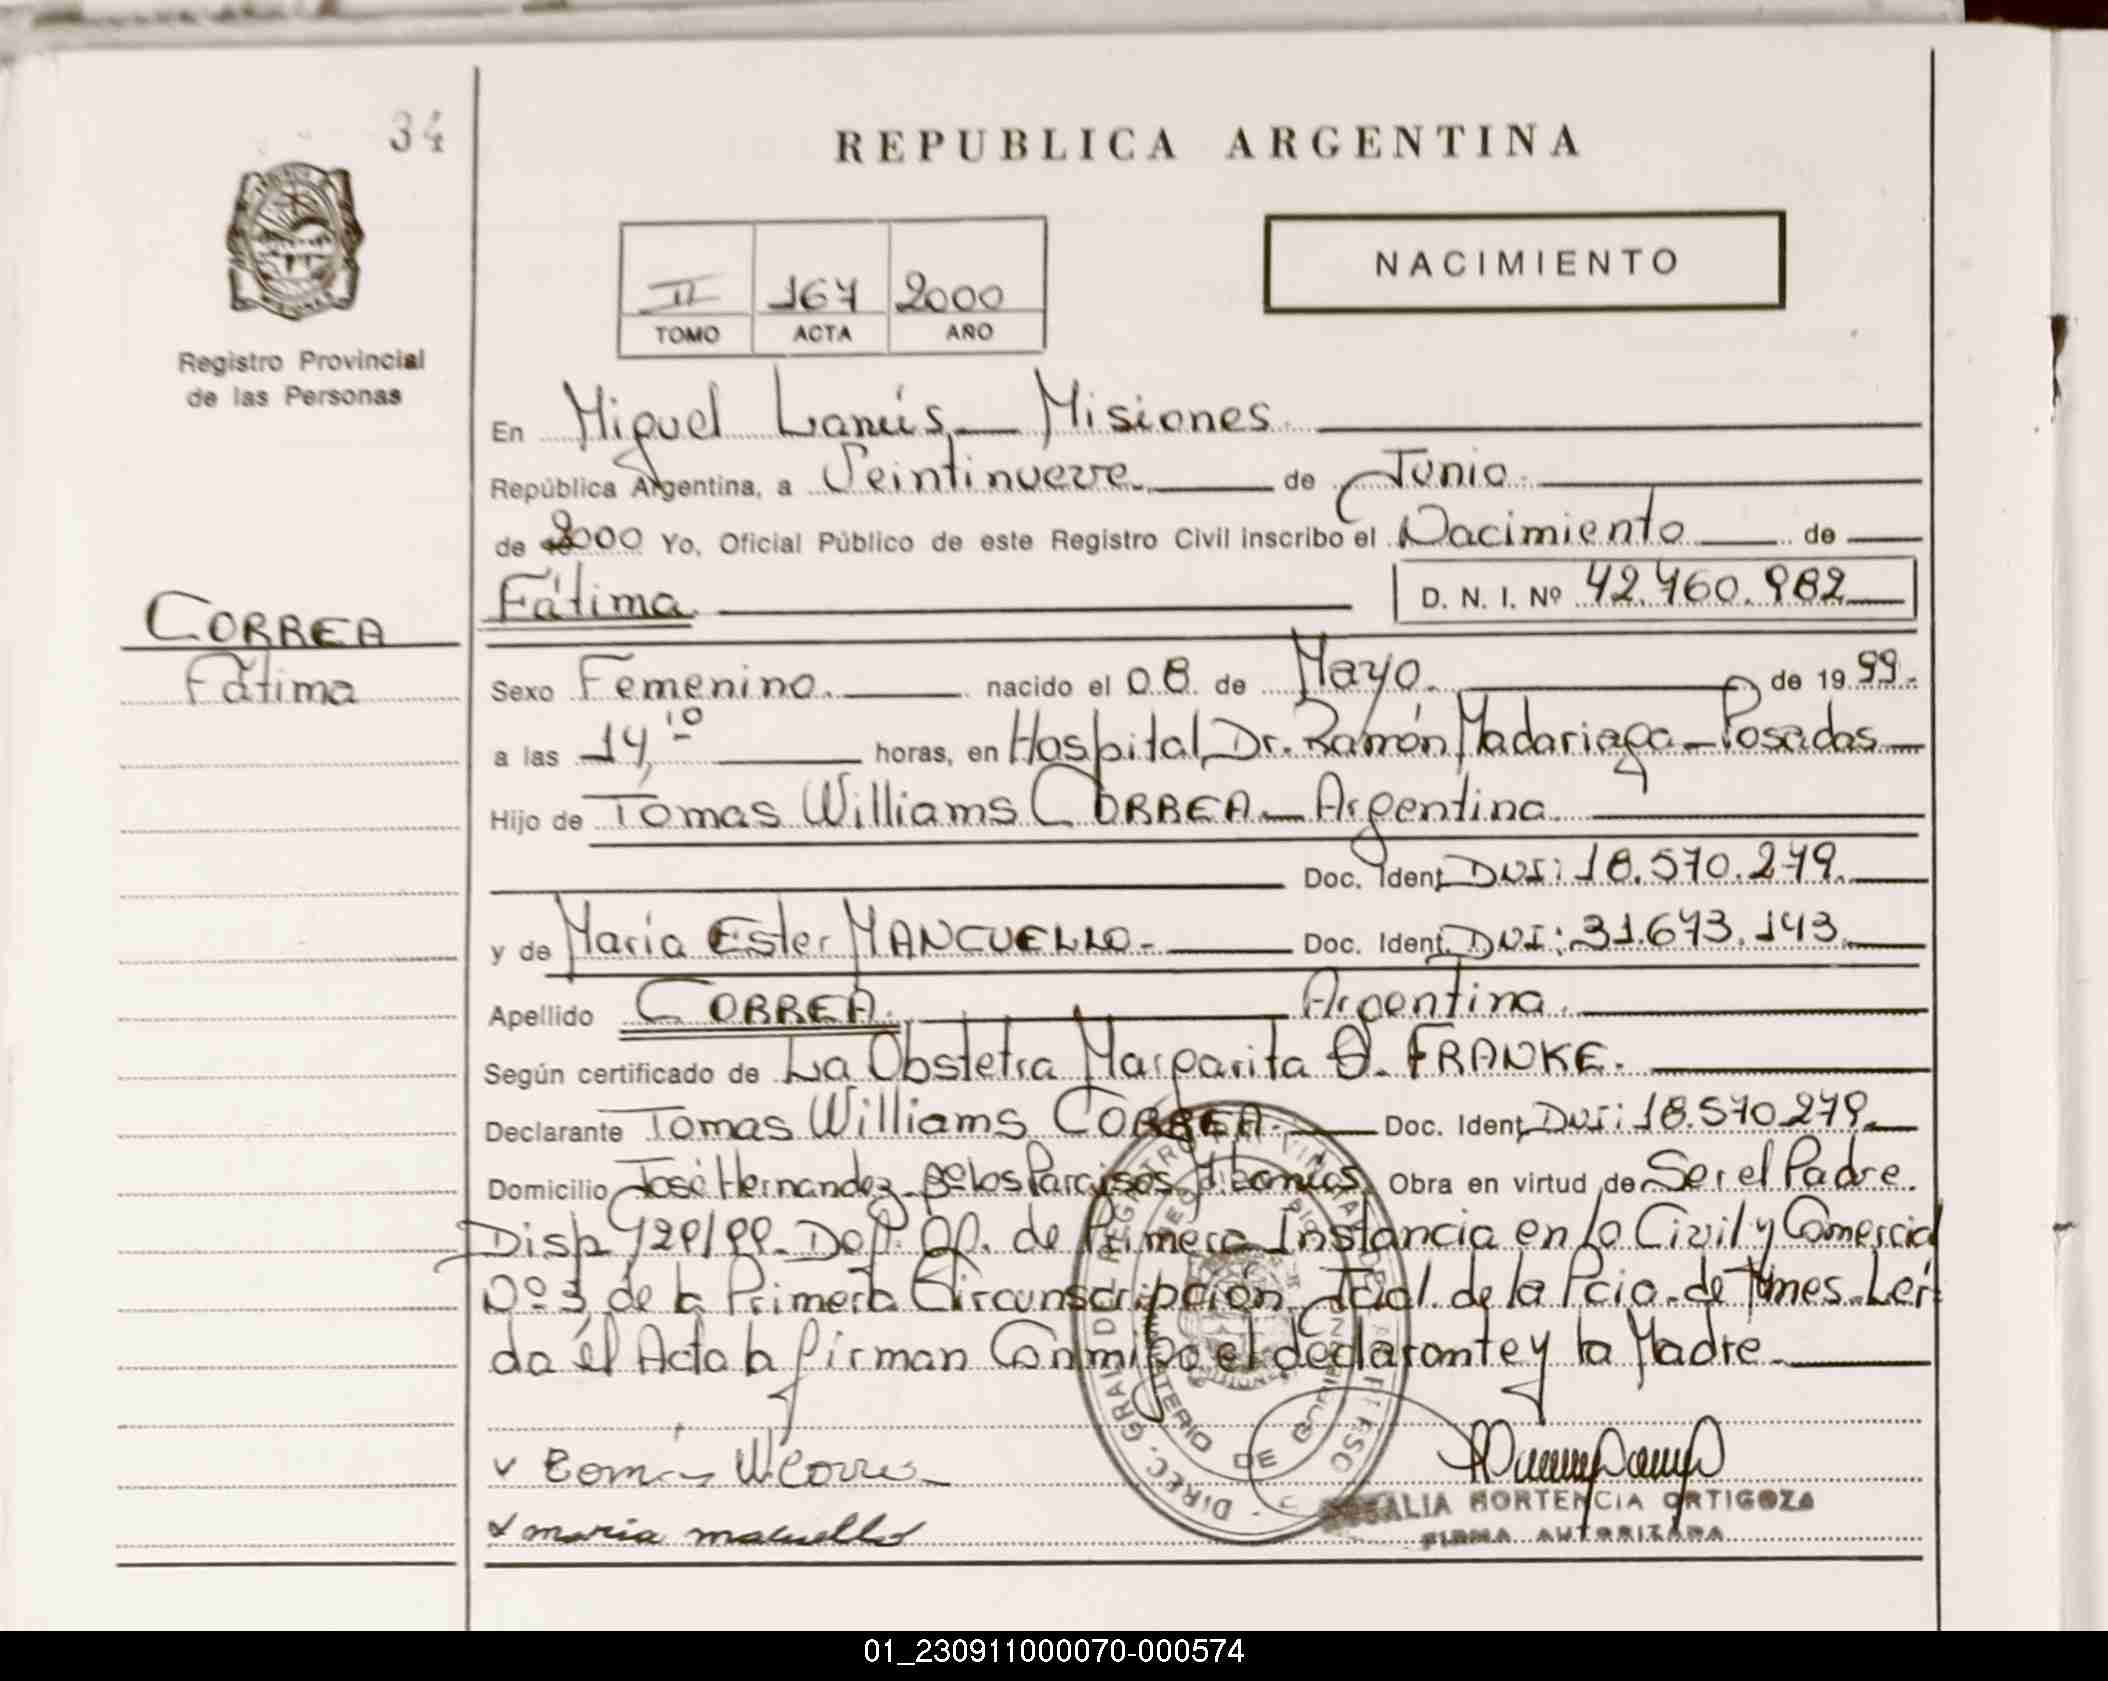 34
REPUBLICA ARGENTINA
NACIMIENTO
II 167 2000
TOMO ACTA AÑO
Registro Provincial
de las Personas
En Miguel Lanús, Misiones
República Argentina, a Veintinueve de Junio
de 2000 Yo, Oficial Público de este Registro Civil inscribo el Nacimiento de
Fátima D. N. I. Nº 42.460.982
CORREA
Fátima
Sexo Femenino. nacido el 08 de Mayo. de 1999.
a las 14,10 horas, en Hospital Dr. Ramón Madariaga - Posadas
Hijo de Tomas Williams CORREA - Argentina.
Doc. Ident. DNI: 18.570.279.
y de María Ester MANCUELLO. Doc. Ident. DNI: 31.673.143
Apellido CORREA. Argentina.
Según certificado de La Obstetra Margarita O. FRANKE.
Declarante Tomas Williams CORREA. Doc. Ident. DNI: 18.570.279.
Domicilio José Hernandez - Bº Los Paraisos, Obra en virtud de Ser el Padre.
Disp 729/99. Def. Of. de Primera Instancia en lo Civil y Comercial
Nº 3 de la Primera Circunscripción Jcial. de la Pcia. de Mnes. Leí-
da él Acta la firman Conmigo el declarante y la Madre.
Tomás W. Correa
maria macuello
DIREC. GRAL DEL REGISTRO
MINISTERIO DE GOBIERNO
ROSALIA HORTENCIA ORTIGOZA
FIRMA AUTORIZADA
01_230911000070-000574